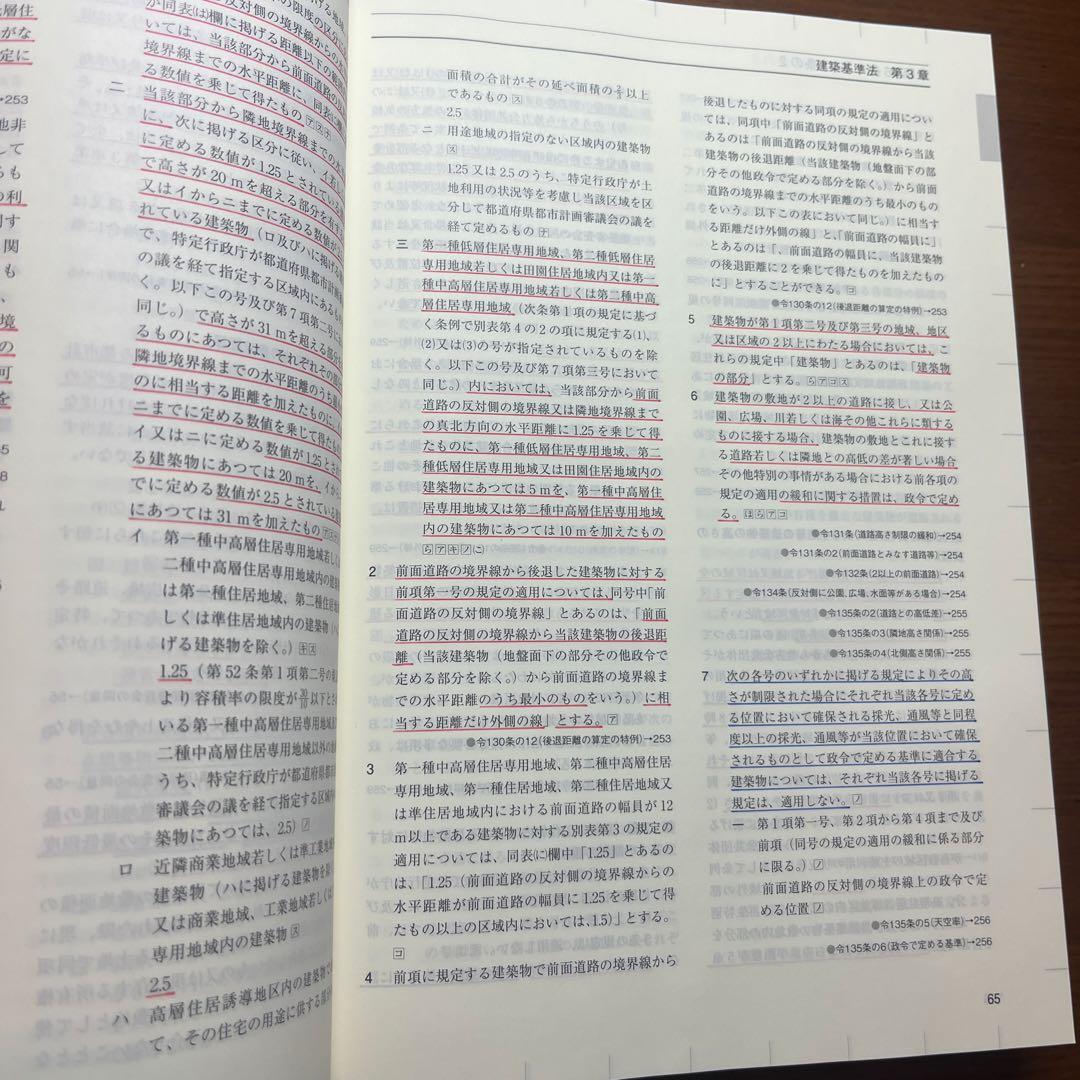 層住
がな
定に
→253
地非
して
るも
の利
対す
関
も
境
の
可
を
の限度の区分に
反対側の境界線からの水
が同表(は)欄に掲げる距離以下の範
いては、当該部分から前面道路の反
境界線までの水平距離に、同表に
る数値を乗じて得たもの
二 当該部分から隣地境界線までの水
に、次に掲げる区分に従い、イ若し
に定める数値が1.25とされている
で高さが20mを超える部分を有する
又はイからニまでに定める数値が
れている建築物(ロ及びハに掲げる
で、特定行政庁が都道府県都市計画
の議を経て指定する区域内にあるもの
く。以下この号及び第7項第二号に
同じ。)で高さが31mを超える部分を
るものにあつては、それぞれその部分
隣地境界線までの水平距離のうち最
のに相当する距離を加えたものに、
ニまでに定める数値を乗じて得たも
イ又はニに定める数値が1.25とされ
る建築物にあつては20mを、イか
でに定める数値が2.5とされている
にあつては31mを加えたもの
イ 第一種中高層住居専用地域若しく
二種中高層住居専用地域内の建築
は第一種住居地域、第二種住居
しくは準住居地域内の建築物(ハ
げる建築物を除く。)
1.25(第52条第1項第二号の
より容積率の限度が30/10以下と
いる第一種中高層住居専用地域
二種中高層住居専用地域以外の
うち、特定行政庁が都道府県都
審議会の議を経て指定する区域
築物にあつては、2.5)
ロ 近隣商業地域若しくは準工業地
建築物(ハに掲げる建築物を除
又は商業地域、工業地域若しくは
専用地域内の建築物
2.5
ハ 高層住居誘導地区内の建築物で
て、その住宅の用途に供する部
建築基準法 第3章
面積の合計がその延べ面積の2/3以上
であるもの ス
2.5
ニ 用途地域の指定のない区域内の建築物
ス
1.25又は2.5のうち、特定行政庁が土
地利用の状況等を考慮し当該区域を区
分して都道府県都市計画審議会の議を
経て定めるもの ナ
三 第一種低層住居専用地域、第二種低層住居
専用地域若しくは田園住居地域内又は第一
種中高層住居専用地域若しくは第二種中高
層住居専用地域(次条第1項の規定に基づ
く条例で別表第4の2の項に規定する(1)、
(2)又は(3)の号が指定されているものを除
く。以下この号及び第7項第三号において
同じ。)内においては、当該部分から前面
道路の反対側の境界線又は隣地境界線まで
の真北方向の水平距離に1.25を乗じて得
たものに、第一種低層住居専用地域、第二
種低層住居専用地域又は田園住居地域内の
建築物にあつては5mを、第一種中高層住
居専用地域又は第二種中高層住居専用地域
内の建築物にあつては10mを加えたもの
らアキノに
2 前面道路の境界線から後退した建築物に対する
前項第一号の規定の適用については、同号中「前
面道路の反対側の境界線」とあるのは、「前面
道路の反対側の境界線から当該建築物の後退距
離(当該建築物(地盤面下の部分その他政令で
定める部分を除く。)から前面道路の境界線ま
での水平距離のうち最小のものをいう。)に相
当する距離だけ外側の線」とする。ア
●令130条の12(後退距離の算定の特例)→253
3 第一種中高層住居専用地域、第二種中高層住居
専用地域、第一種住居地域、第二種住居地域又
は準住居地域内における前面道路の幅員が12
m以上である建築物に対する別表第3の規定の
適用については、同表(に)欄中「1.25」とあるの
は、「1.25(前面道路の反対側の境界線からの
水平距離が前面道路の幅員に1.25を乗じて得
たもの以上の区域内においては、1.5)」とする。
コ
4 前項に規定する建築物で前面道路の境界線から
後退したものに対する同項の規定の適用につい
ては、同項中「前面道路の反対側の境界線」と
あるのは「前面道路の反対側の境界線から当該
建築物の後退距離(当該建築物(地盤面下の部
分その他政令で定める部分を除く。)から前面
道路の境界線までの水平距離のうち最小のもの
をいう。以下この表において同じ。)に相当す
る距離だけ外側の線」と、「前面道路の幅員に」
とあるのは「、前面道路の幅員に、当該建築物
の後退距離に2を乗じて得たものを加えたもの
に」とすることができる。コ
●令130条の12(後退距離の算定の特例)→253
5 建築物が第1項第二号及び第三号の地域、地区
又は区域の2以上にわたる場合においては、こ
れらの規定中「建築物」とあるのは、「建築物
の部分」とする。らアコス
6 建築物の敷地が2以上の道路に接し、又は公
園、広場、川若しくは海その他これらに類する
ものに接する場合、建築物の敷地とこれに接す
る道路若しくは隣地との高低の差が著しい場合
その他特別の事情がある場合における前各項の
規定の適用の緩和に関する措置は、政令で定め
る。ほらアコ
●令131条(道路高さ制限の緩和)→254
●令131条の2(前面道路とみなす道路等)→254
●令132条(2以上の前面道路)→254
●令134条(反対側に公園、広場、水面等がある場合)→254
●令135条の2(道路との高低差)→255
●令135条の3(隣地高さ関係)→255
●令135条の4(北側高さ関係)→255
7 次の各号のいずれかに掲げる規定によりその高
さが制限された場合にそれぞれ当該各号に定め
る位置において確保される採光、通風等と同程
度以上の採光、通風等が当該位置において確保
されるものとして政令で定める基準に適合する
建築物については、それぞれ当該各号に掲げる
規定は、適用しない。ノ
一 第1項第一号、第2項から第4項まで及び
前項(同号の規定の適用の緩和に係る部分
に限る。)ノ
前面道路の反対側の境界線上の政令で定
める位置 ノ
●令135条の5(天空率)→256
●令135条の6(政令で定める基準)→256
65